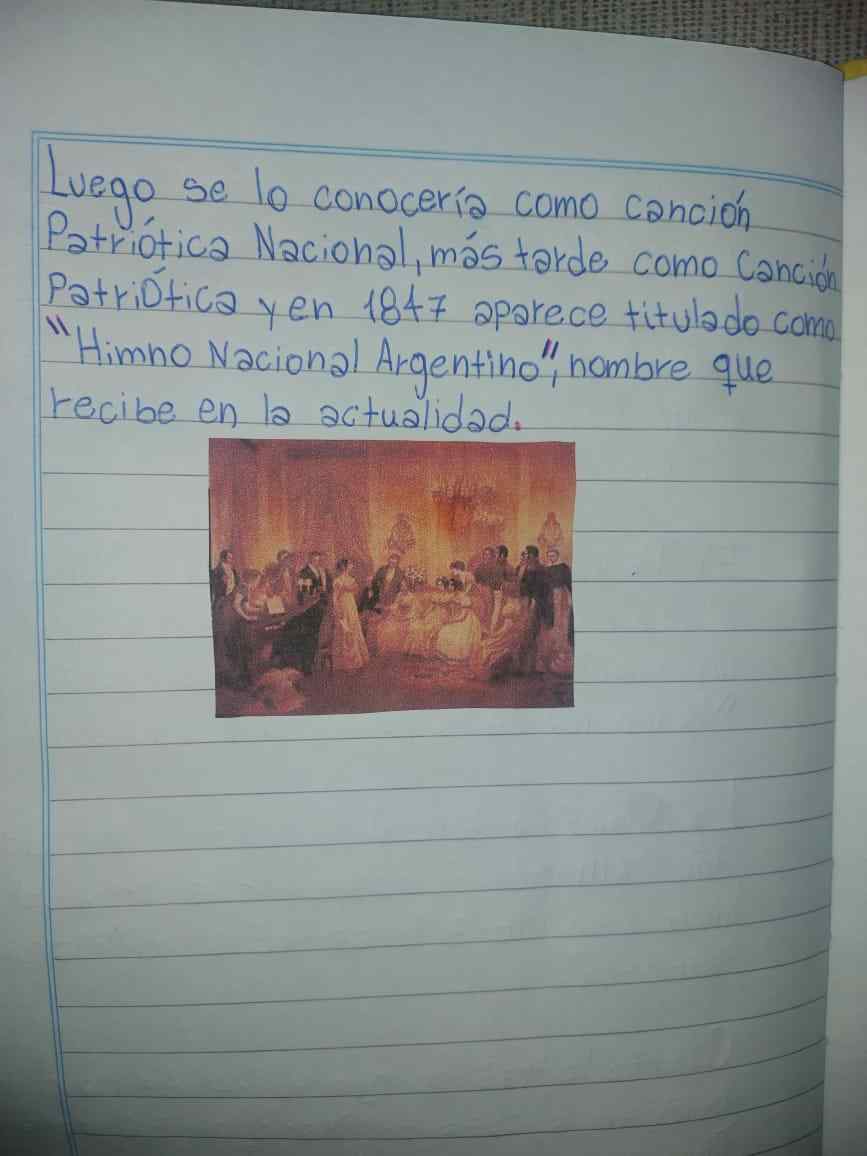 Luego se lo conocería como canción
Patriótica Nacional, más tarde como Canción
Patriótica y en 1847 aparece titulado como
"Himno Nacional Argentino", nombre que
recibe en la actualidad.